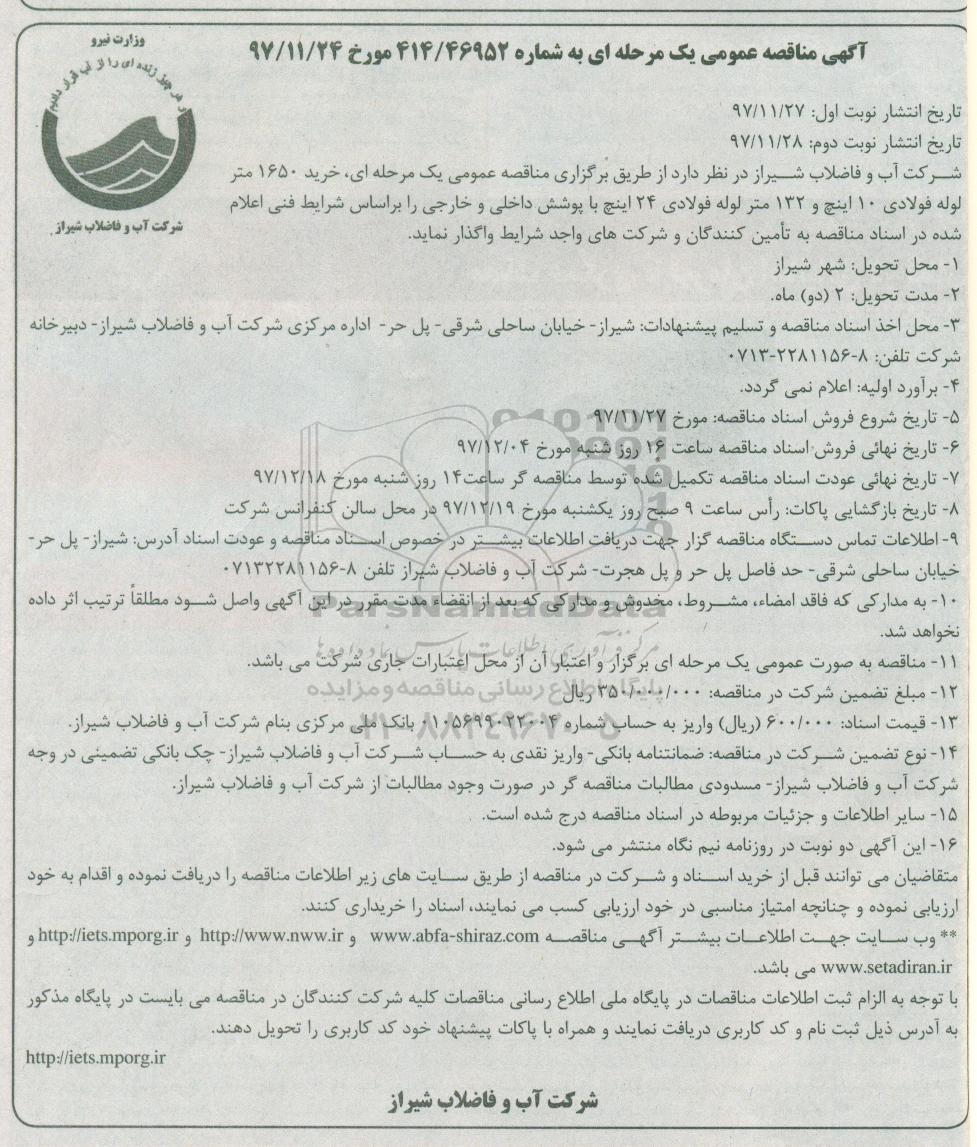 وزارت نیرو
و هر چیز زنده ای را از آب قرار دادیم
شرکت آب و فاضلاب شیراز
آگهی مناقصه عمومی یک مرحله ای به شماره ۴۱۴/۴۶۹۵۲ مورخ ۹۷/۱۱/۲۴
تاریخ انتشار نوبت اول: ۹۷/۱۱/۲۷
تاریخ انتشار نوبت دوم: ۹۷/۱۱/۲۸
شرکت آب و فاضلاب شیراز در نظر دارد از طریق برگزاری مناقصه عمومی یک مرحله ای، خرید ۱۶۵۰ متر
لوله فولادی ۱۰ اینچ و ۱۳۲ متر لوله فولادی ۲۴ اینچ با پوشش داخلی و خارجی را براساس شرایط فنی اعلام
شده در اسناد مناقصه به تأمین کنندگان و شرکت های واجد شرایط واگذار نماید.
۱- محل تحویل: شهر شیراز
۲- مدت تحویل: ۲ (دو) ماه.
۳- محل اخذ اسناد مناقصه و تسلیم پیشنهادات: شیراز- خیابان ساحلی شرقی- پل حر- اداره مرکزی شرکت آب و فاضلاب شیراز- دبیرخانه
شرکت تلفن: ۸-۲۲۸۱۱۵۶-۰۷۱۳
۴- برآورد اولیه: اعلام نمی گردد.
۵- تاریخ شروع فروش اسناد مناقصه: مورخ ۹۷/۱۱/۲۷
۶- تاریخ نهائی فروش اسناد مناقصه ساعت ۱۶ روز شنبه مورخ ۹۷/۱۲/۰۴
۷- تاریخ نهائی عودت اسناد مناقصه تکمیل شده توسط مناقصه گر ساعت۱۴ روز شنبه مورخ ۹۷/۱۲/۱۸
۸- تاریخ بازگشایی پاکات: رأس ساعت ۹ صبح روز یکشنبه مورخ ۹۷/۱۲/۱۹ در محل سالن کنفرانس شرکت
۹- اطلاعات تماس دستگاه مناقصه گزار جهت دریافت اطلاعات بیشتر در خصوص اسناد مناقصه و عودت اسناد آدرس: شیراز- پل حر-
خیابان ساحلی شرقی- حد فاصل پل حر و پل هجرت- شرکت آب و فاضلاب شیراز تلفن ۸-۰۷۱۳۲۲۸۱۱۵۶
۱۰- به مدارکی که فاقد امضاء، مشروط، مخدوش و مدارکی که بعد از انقضاء مدت مقرر در این آگهی واصل شود مطلقاً ترتیب اثر داده
نخواهد شد.
۱۱- مناقصه به صورت عمومی یک مرحله ای برگزار و اعتبار آن از محل اعتبارات جاری شرکت می باشد.
۱۲- مبلغ تضمین شرکت در مناقصه: ۳۵۰/۰۰۰/۰۰۰ ریال
۱۳- قیمت اسناد: ۶۰۰/۰۰۰ (ریال) واریز به حساب شماره ۰۱۰۵۶۹۹۰۲۲۰۰۴ بانک ملی مرکزی بنام شرکت آب و فاضلاب شیراز.
۱۴- نوع تضمین شرکت در مناقصه: ضمانتنامه بانکی- واریز نقدی به حساب شرکت آب و فاضلاب شیراز- چک بانکی تضمینی در وجه
شرکت آب و فاضلاب شیراز- مسدودی مطالبات مناقصه گر در صورت وجود مطالبات از شرکت آب و فاضلاب شیراز.
۱۵- سایر اطلاعات و جزئیات مربوطه در اسناد مناقصه درج شده است.
۱۶- این آگهی دو نوبت در روزنامه نیم نگاه منتشر می شود.
متقاضیان می توانند قبل از خرید اسناد و شرکت در مناقصه از طریق سایت های زیر اطلاعات مناقصه را دریافت نموده و اقدام به خود
ارزیابی نموده و چنانچه امتیاز مناسبی در خود ارزیابی کسب می نمایند، اسناد را خریداری کنند.
** وب سایت جهت اطلاعات بیشتر آگهی مناقصه www.abfa-shiraz.com و http://www.nww.ir و http://iets.mporg.ir و
www.setadiran.ir می باشد.
با توجه به الزام ثبت اطلاعات مناقصات در پایگاه ملی اطلاع رسانی مناقصات کلیه شرکت کنندگان در مناقصه می بایست در پایگاه مذکور
به آدرس ذیل ثبت نام و کد کاربری دریافت نمایند و همراه با پاکات پیشنهاد خود کد کاربری را تحویل دهند.
http://iets.mporg.ir
شرکت آب و فاضلاب شیراز
ParsNamadData
مرکز فرآوری اطلاعات پارس نماد داده ها
پایگاه اطلاع رسانی مناقصه و مزایده
۰۲۱-۸۸۳۴۹۶۷۰-۵